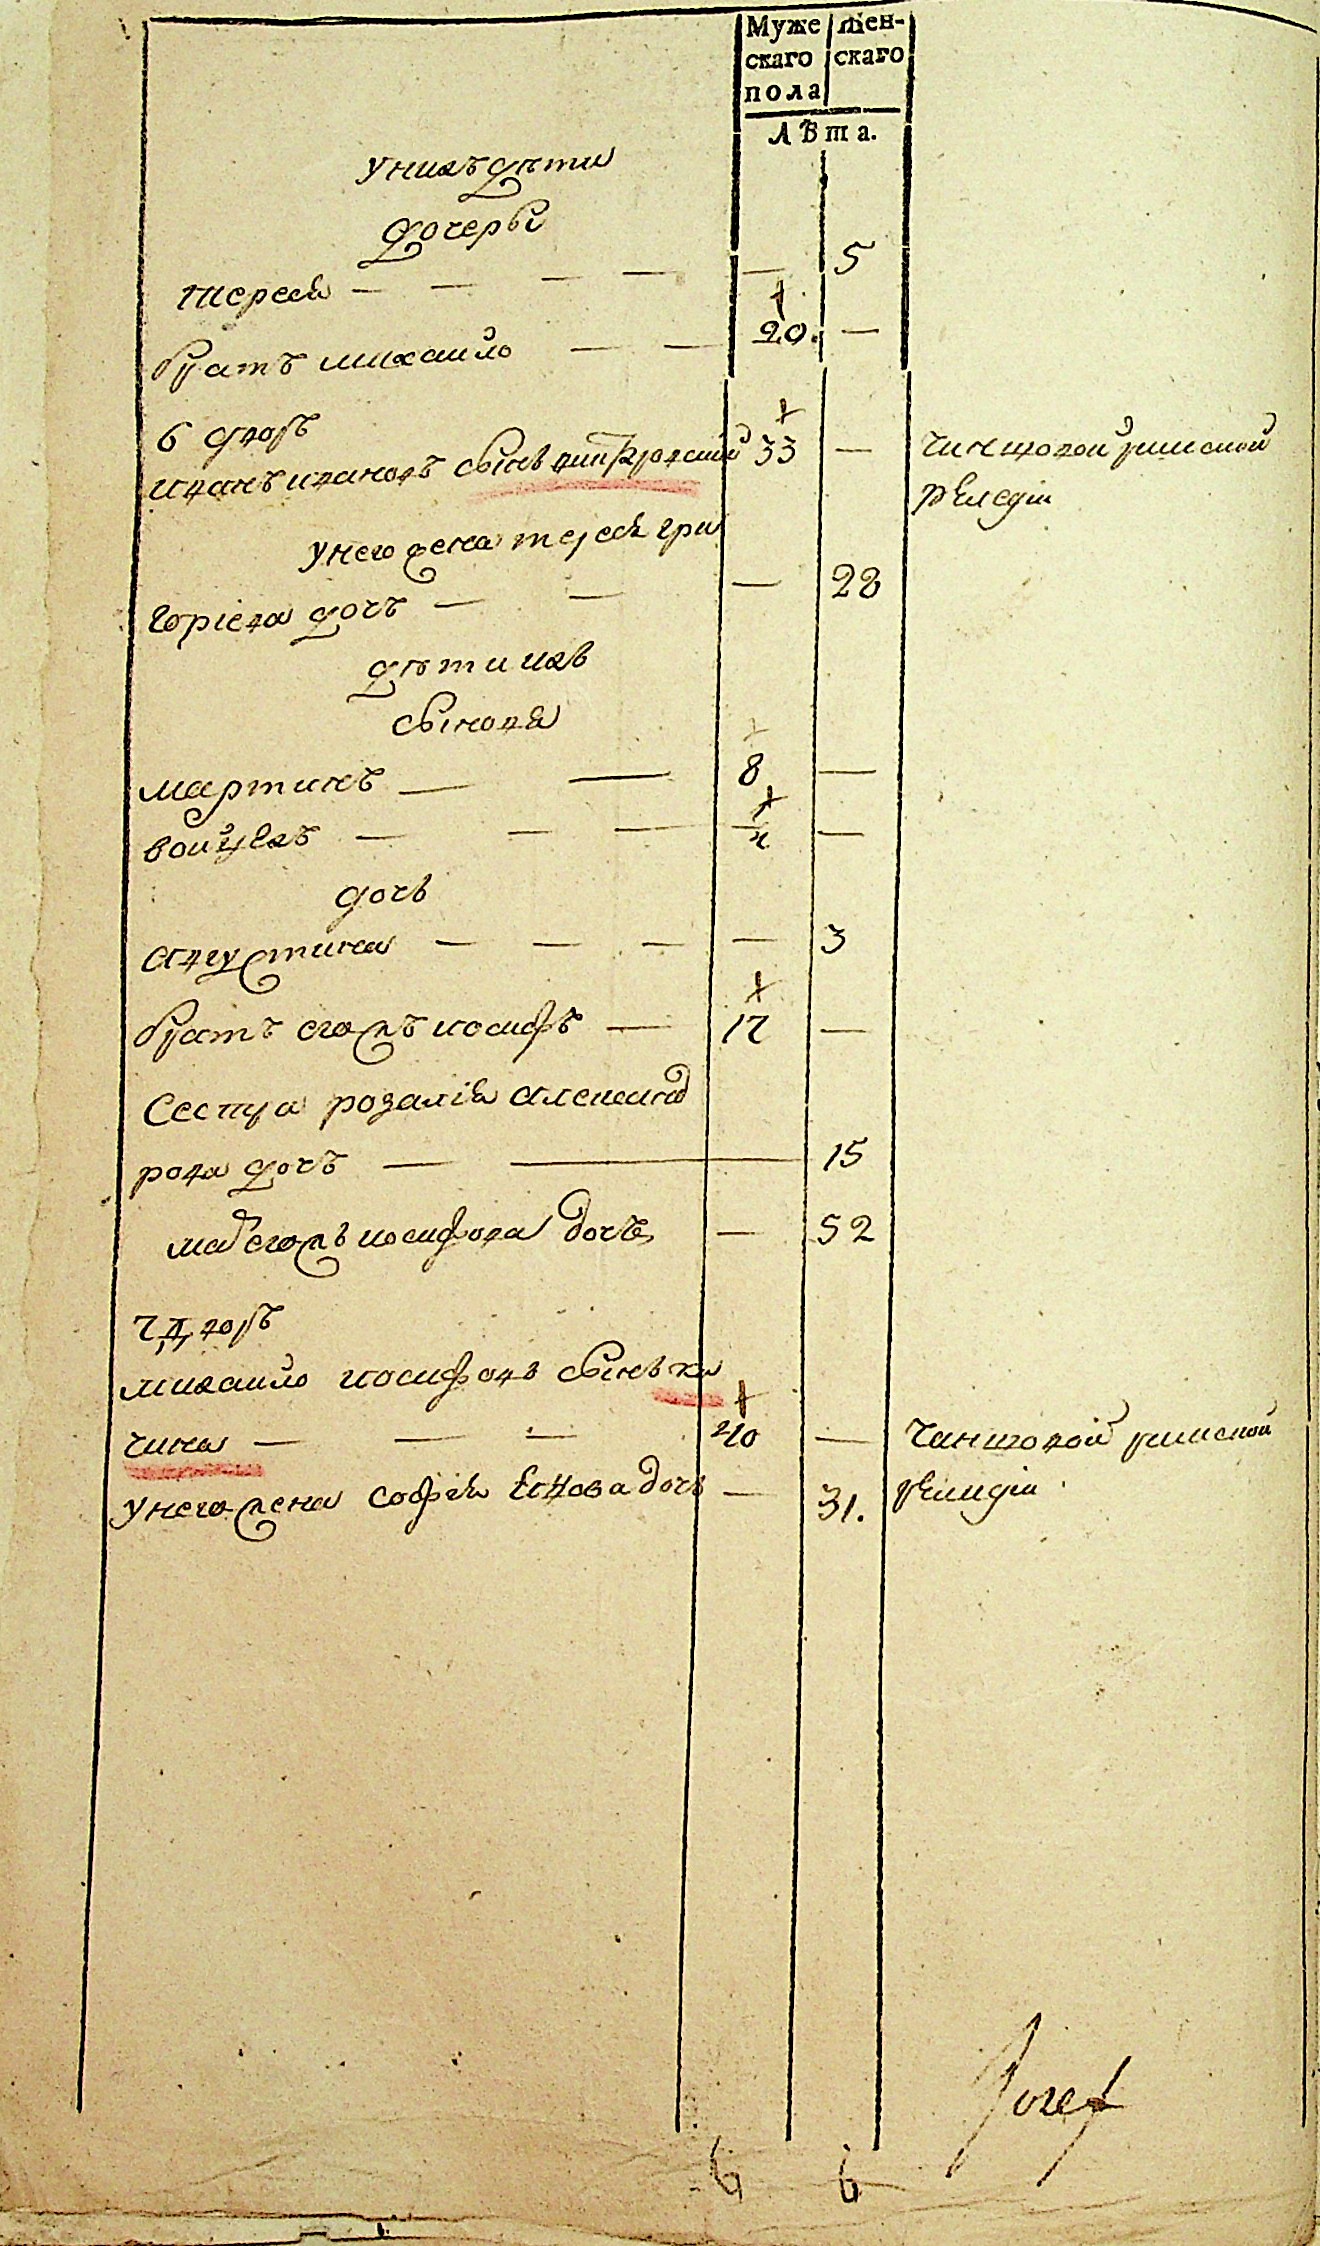 Муже
скаго
пола
жен-
скаго
Лѣта.
у нихъ дѣти
дочеры
тересія — — — — — 5
братъ михайло — — 20. —
6 дворъ
иванъ ивановъ сынъ 33 — чиншовой римской
религіи
у него жена тереся гри
горіева дочь — — — 28
дѣти ихъ
сыновя
мартинъ — — 8 —
войцехъ — — — 4 —
дочь
августина — — — — 3
братъ егожъ иосифъ — 17 —
сестра розалія александ
рова дочь — — 15
мат егожъ иосифова дочь — 52
7 дворъ
михайло иосифовъ сынъ ка
чина — — — 40 — чиншовой римской
религіи
у него жена софія дочь — 31.
6 6
Jozef